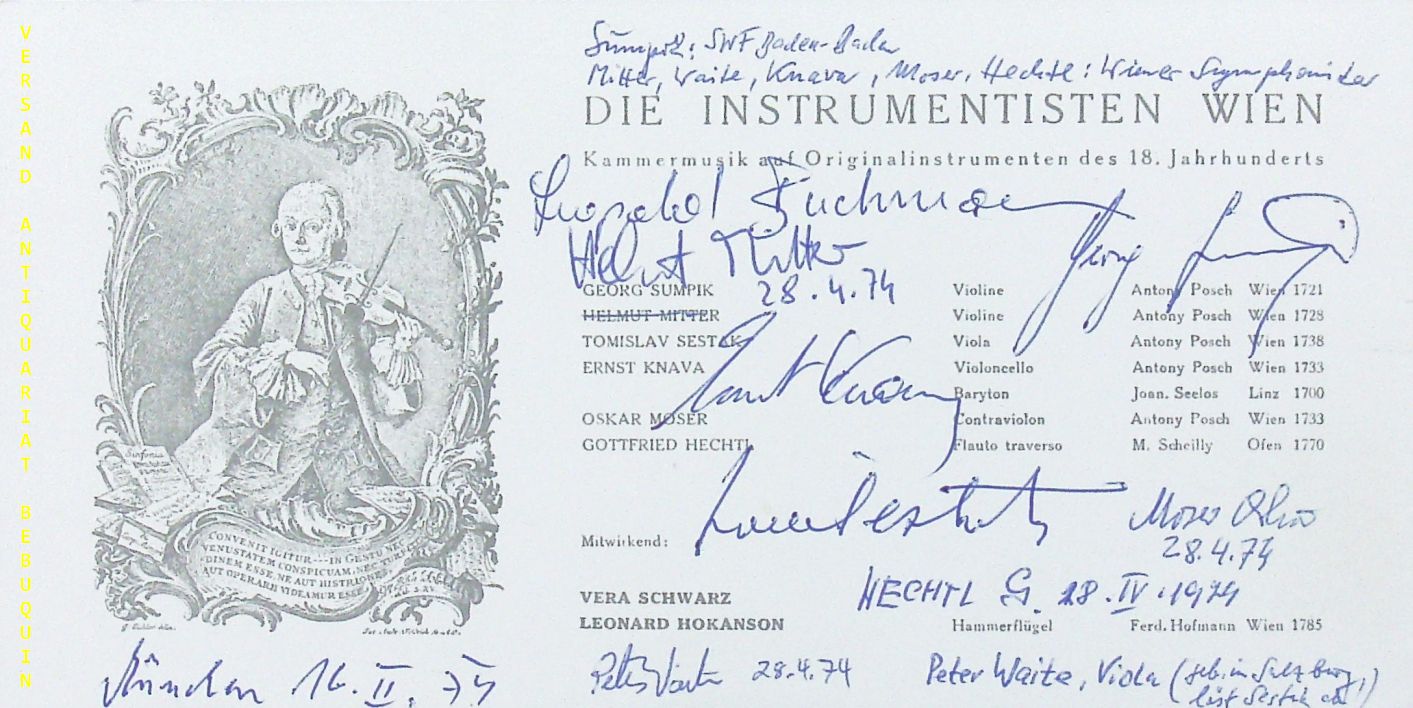 VERSAND ANTIQUARIAT BEBUQUIN
Sumpik: SWF Baden-Baden
Mitter, Waite, Knava, Moser, Hechtl: Wiener Symphoniker
DIE INSTRUMENTISTEN WIEN
Kammermusik auf Originalinstrumenten des 18. Jahrhunderts
Leopold
Helmut Mitter
28.4.74
Georg
GEORG SUMPIK Violine Antony Posch Wien 1721
HELMUT MITTER Violine Antony Posch Wien 1728
TOMISLAV SESTAK Viola Antony Posch Wien 1738
ERNST KNAVA Violoncello Antony Posch Wien 1733
Baryton Joan. Seelos Linz 1700
Ernst Knava
OSKAR MOSER Contraviolon Antony Posch Wien 1733
GOTTFRIED HECHTL Flauto traverso M. Scheilly Ofen 1770
Moser
28.4.74
Mitwirkend:
HECHTL G. 28.IV.1974
VERA SCHWARZ
LEONARD HOKANSON Hammerflügel Ferd. Hofmann Wien 1785
Sinfonia
CONVENIT IGITUR---IN GESTO NEC
VENUSTATEM CONSPICUAM, NEC TURPITU
DINEM ESSE, NE AUT HISTRIONES
AUT OPERARII VIDEAMUR ESSE
München 16.II.75
Peter Waite 28.4.74
Peter Waite, Viola (geb. in Salzburg,
löst Sestak ab)